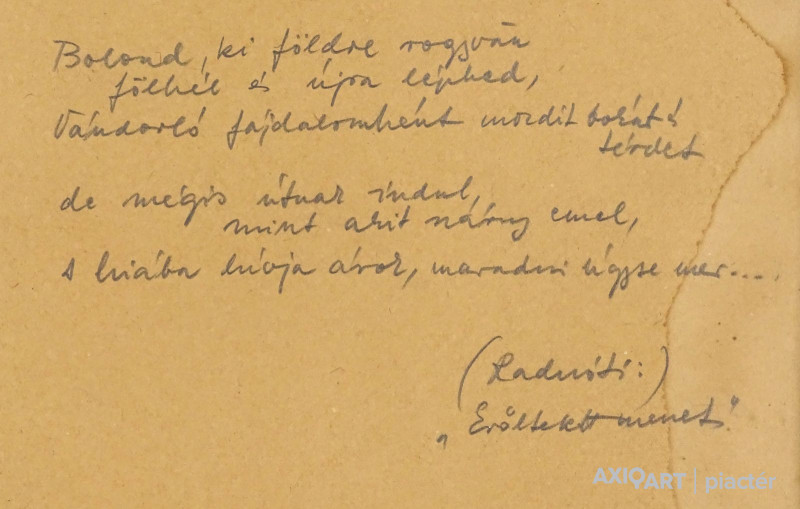 Bolond, ki földre rogyván
fölkél és újra lépked,
Vándorló fájdalomként mozdít bokát s
térdet
de mégis útnak indul,
mint akit szárny emel,
s hiába hívja árok, maradni úgyse mer...
(Radnóti:)
„Erőltetett menet"
AXIOART | piactér